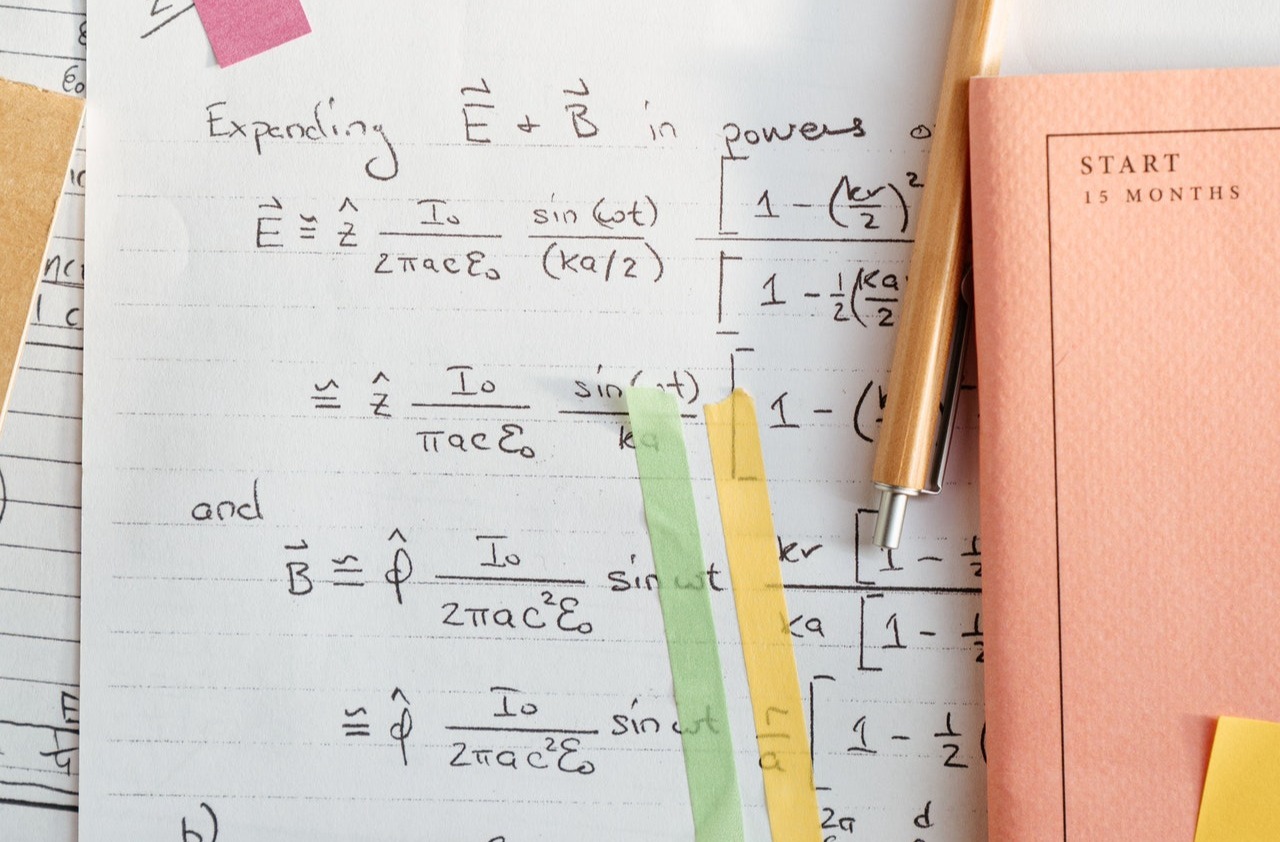 Expanding E⃗ + B⃗ in powers
E⃗ ≅ ẑ I₀/(2πacε₀) sin(ωt)/(ka/2) [1 - (kr/2)²
[1 - 1/2(ka/2
≅ ẑ I₀/(πacε₀) sin(ωt)/ka [1 - (
and
B⃗ ≅ φ̂ I₀/(2πac²ε₀) sin ωt kr [1 - 1/2
ka [1 - 1/2
≅ φ̂ I₀/(2πac²ε₀) sin ωt r/a [1 - 1/2 (
b)
START
15 MONTHS